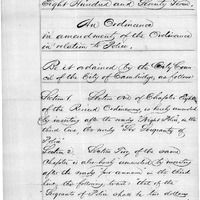 Eight Hundred and Seventy Seven.
An Ordinance
in amendment of the Ordinance
in relation to Police.
Be it ordained by the City Coun-
cil of the City of Cambridge, as follows
Section 1. Section one of Chapter
of the Revised Ordinances, is hereby amended
by inserting after the words "
third line, the words "Two Sergeants of
Police"
Section 2. Section Five of the same
Chapter is also hereby amended by inserting
after the words "per annum" in the third
line, the following words "that of the
Sergeants of Police shall be